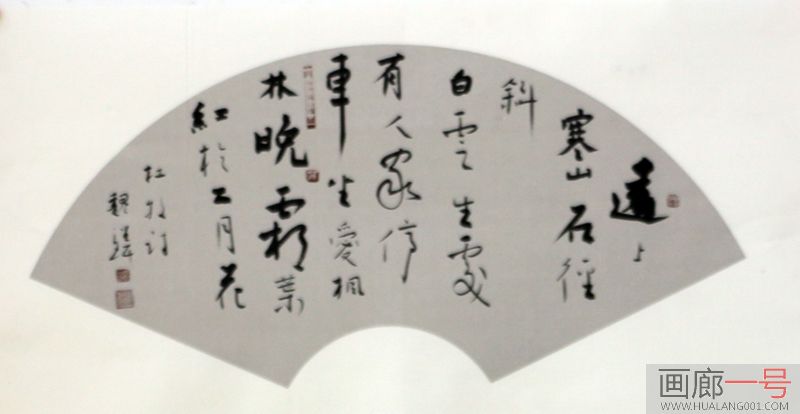 遠上
寒山石徑
斜
白雲生處
有人家停
車坐愛楓
林晚霜葉
紅於二月花
杜牧詩
画廊一号
WWW.HUALANG001.COM